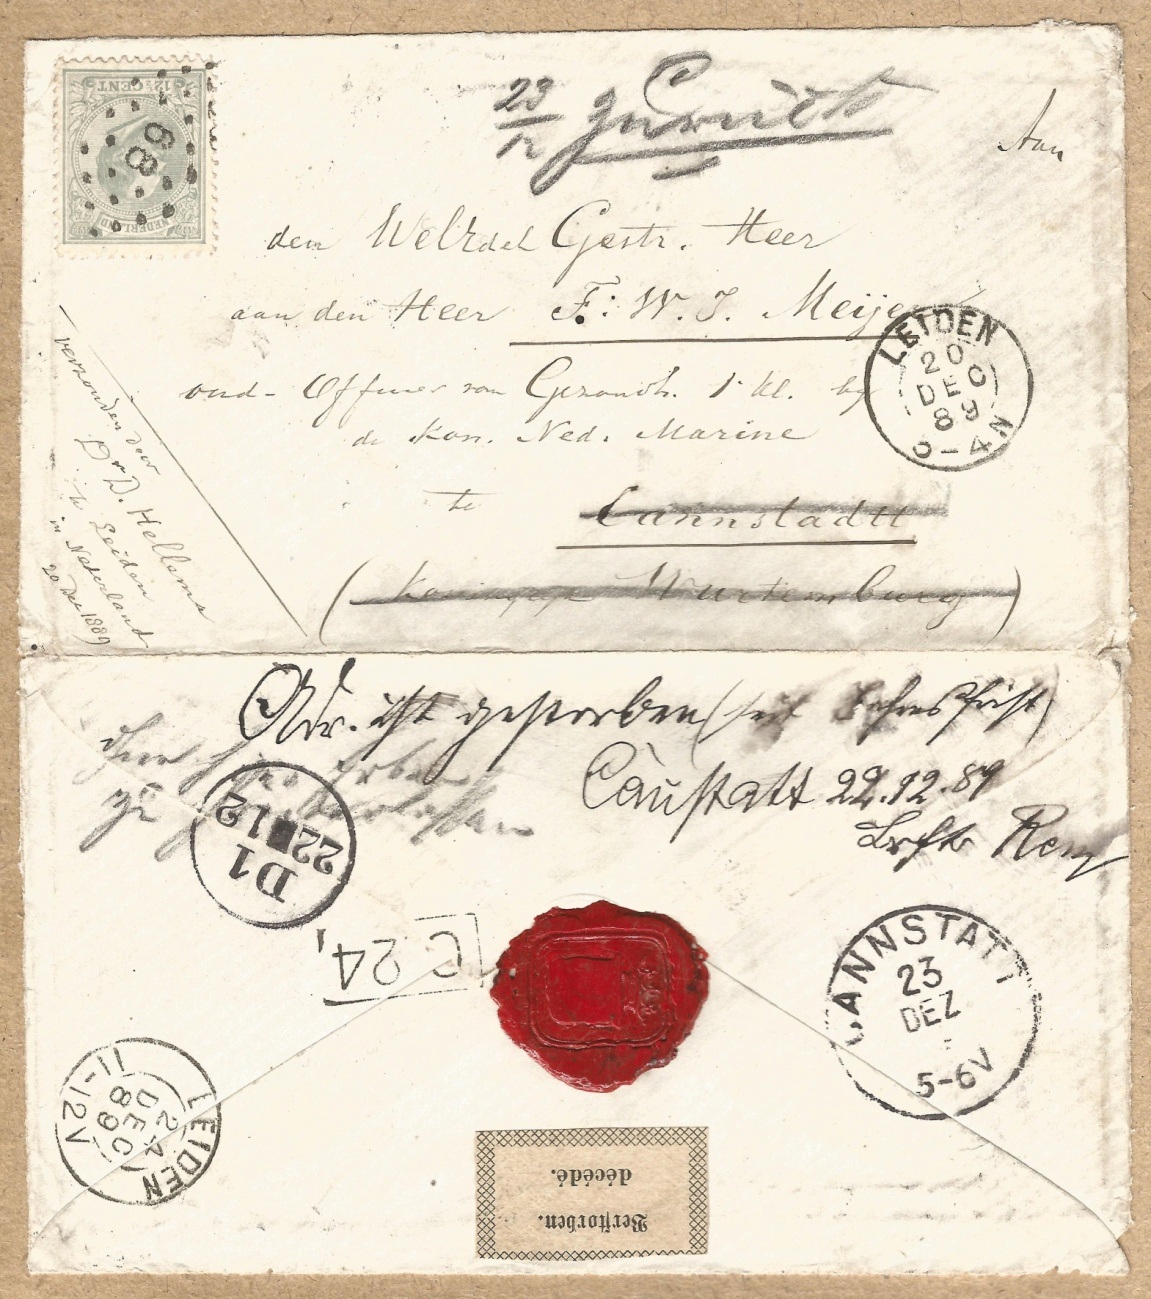 12½ CENT
68
NEDERLAND
23/12 Zurück
Aan
den WelEdel Gestr. Heer
aan den Heer F: W. J. Meijer
oud-Officier van Gezondh. 1e kl. bij
de Kon. Ned. Marine
te Cannstadtt
(Koningrijk Wurtemburg)
LEIDEN
20
DEC
89
3-4N
verzonden door
Dr D. Hellema
te Leiden
in Nederland
20 Dec. 1889
Adr. ist gestorben (seit Jahresfrist)
Canstatt 22.12.89
Brftr Renz
Erben
zu
D1
22 12
C 24,
CANNSTATT
23
DEZ
5-6V
LEIDEN
24
DEC
89
11-12V
Verstorben.
décédé.